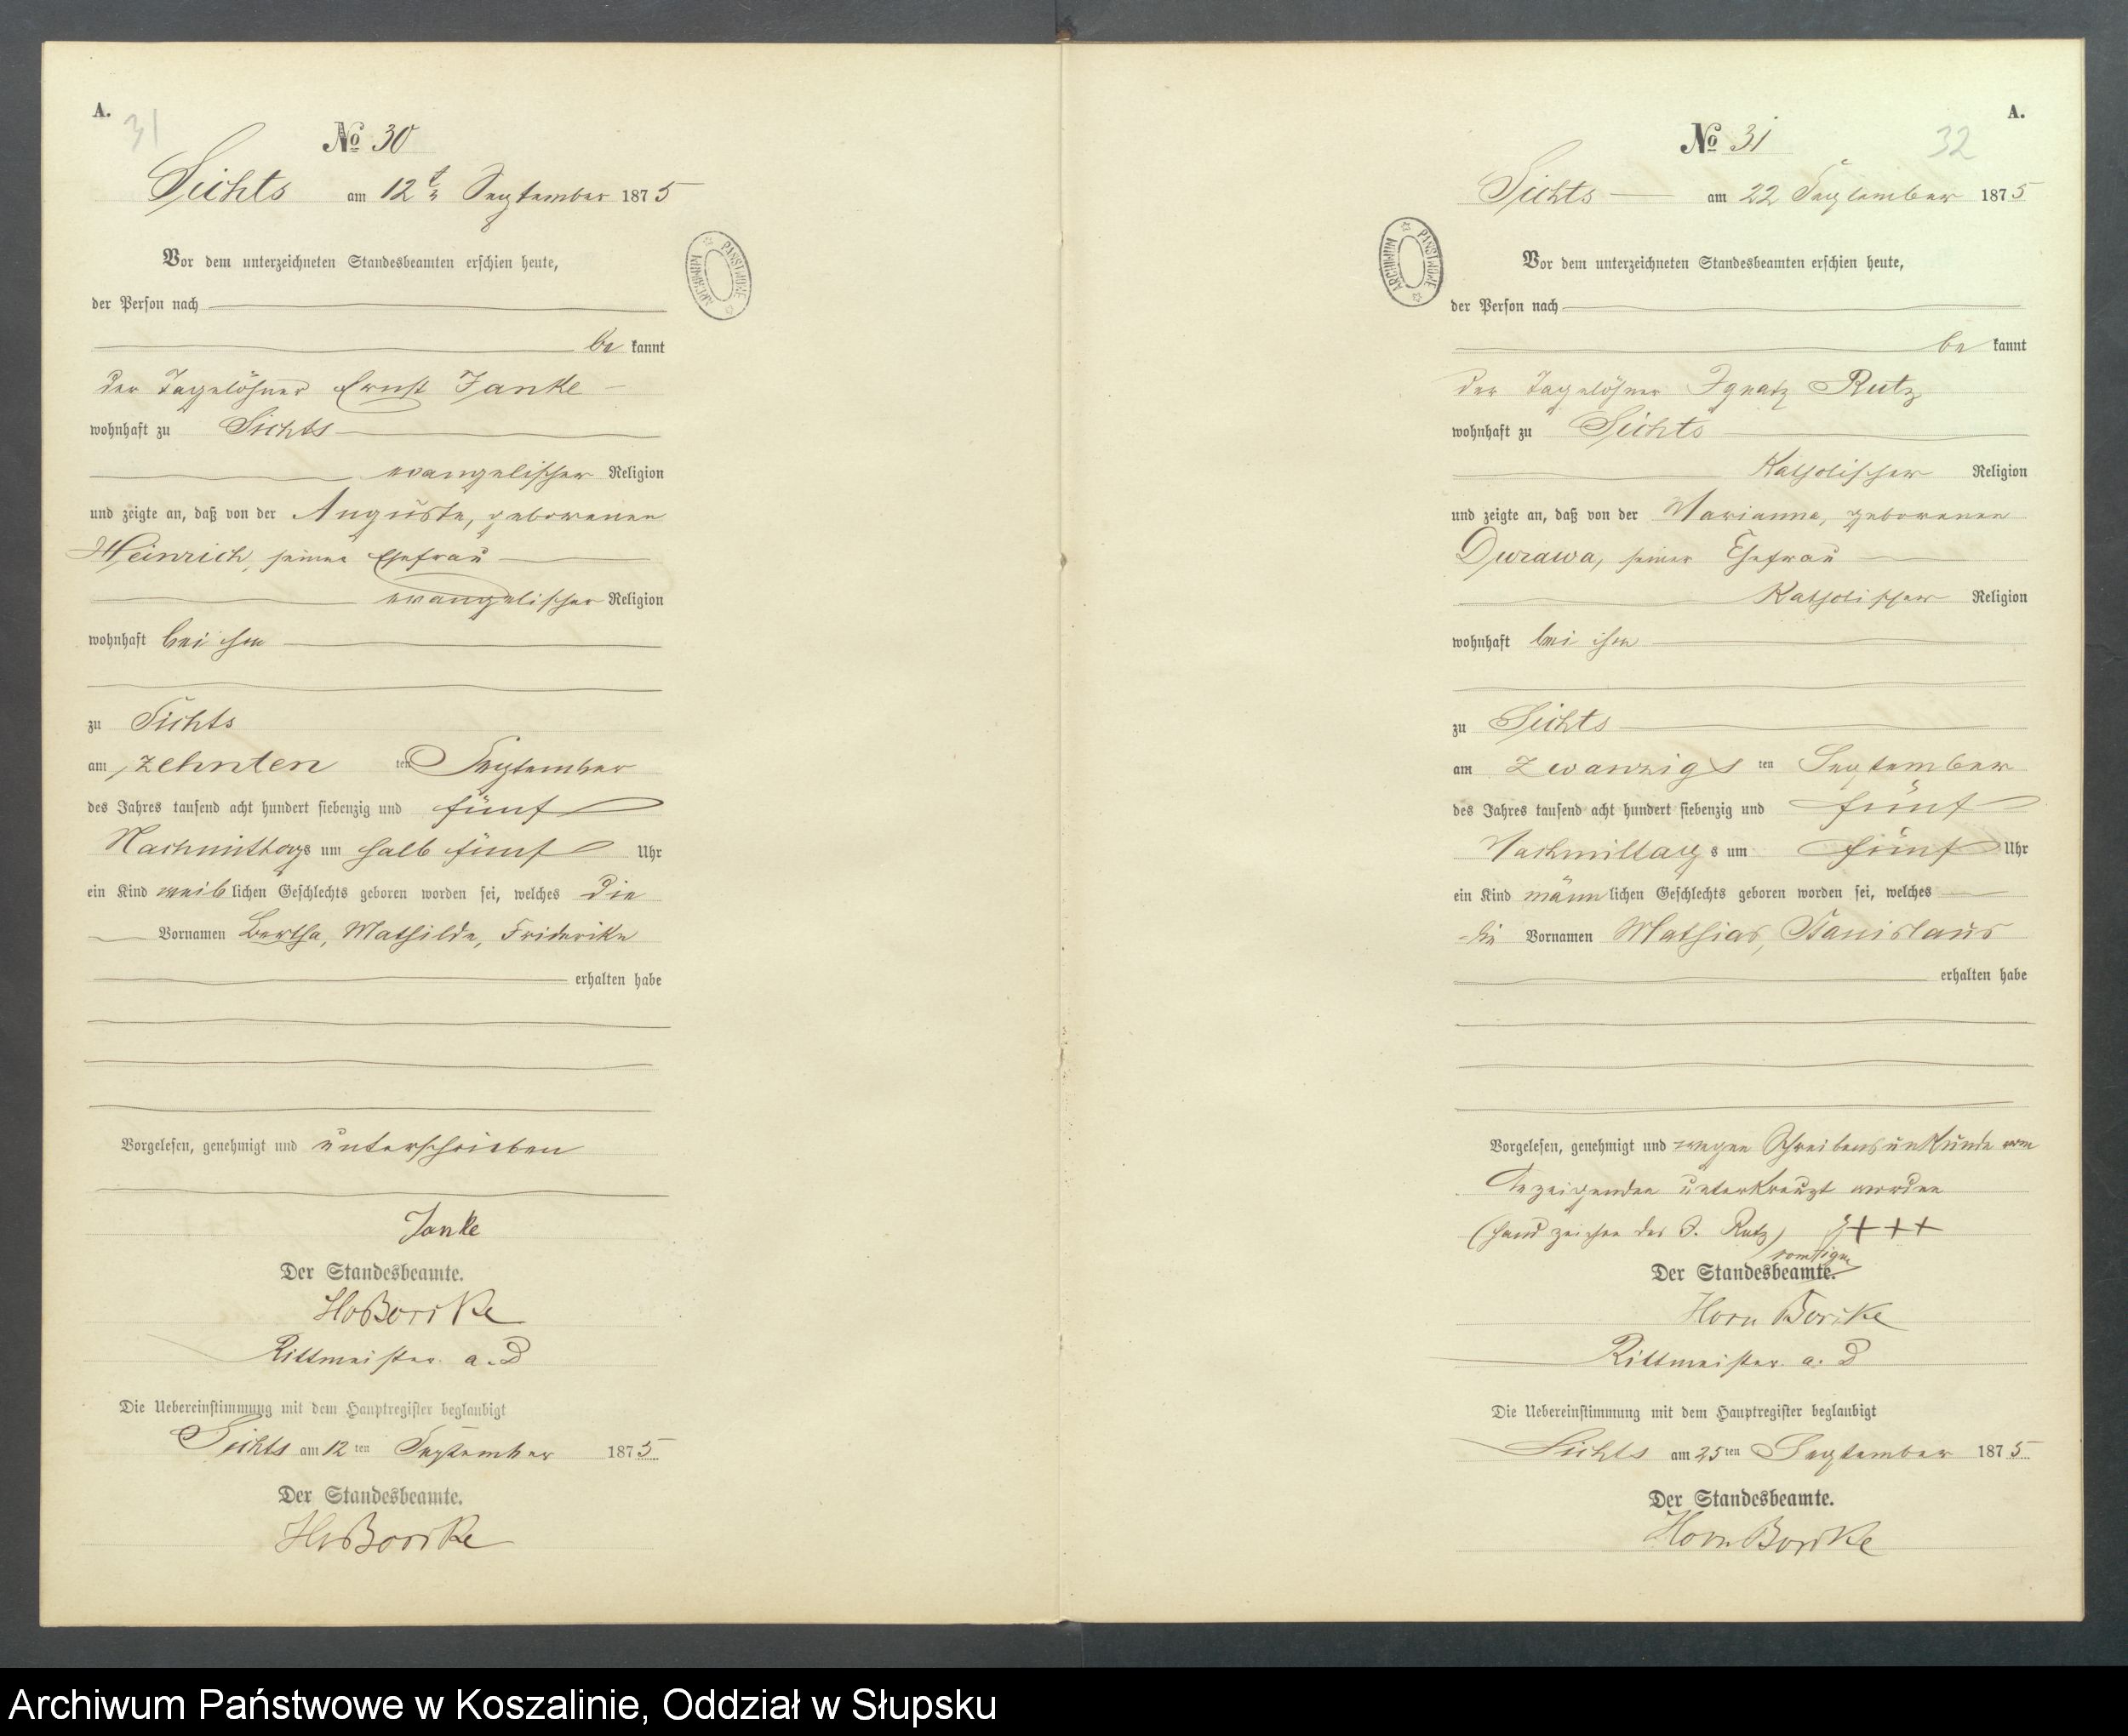 A.
31
No 30
Sichts am 12t September 1875
Vor dem unterzeichneten Standesbeamten erschien heute,
der Person nach
be kannt
der Tagelöhner Ernst Janke
wohnhaft zu Sichts
evangelischer Religion
und zeigte an, daß von der Auguste, geborenen
Heinrich, seiner Ehefrau
evangelischer Religion
wohnhaft bei ihm
zu Sichts
am zehnten ten September
des Jahres tausend acht hundert siebenzig und fünf
Nachmittags um halb fünf Uhr
ein Kind weiblichen Geschlechts geboren worden sei, welches die
Vornamen Bertha, Mathilde, Friderike
erhalten habe
Vorgelesen, genehmigt und unterschrieben
Janke
Der Standesbeamte.
Rittmeister a. D
Die Uebereinstimmung mit dem Hauptregister beglaubigt
Sichts am 12 ten September 1875
Der Standesbeamte.
ARCHIWUM PAŃSTWOWE
A.
32
No 31
Sichts am 22 September 1875
Vor dem unterzeichneten Standesbeamten erschien heute,
der Person nach
be kannt
der Tagelöhner Ignatz Rutz
wohnhaft zu Sichts
Katholischer Religion
und zeigte an, daß von der Marianna, geborenen
Durawa, seiner Ehefrau
Katholischer Religion
wohnhaft bei ihm
zu Sichts
am Zwanzigs ten September
des Jahres tausend acht hundert siebenzig und fünf
Nachmittags um fünf Uhr
ein Kind männlichen Geschlechts geboren worden sei, welches
die Vornamen Mathias, Stanislaus
erhalten habe
Vorgelesen, genehmigt und wegen Schreibensunkunde vom
Anzeigenden unterkreuzt worden
(Handzeichen des J. Rutz) +++
Der Standesbeamte.
Horn Borske
Rittmeister a. D
Die Uebereinstimmung mit dem Hauptregister beglaubigt
Sichts am 25ten September 1875
Der Standesbeamte.
Horn Borske
ARCHIWUM PAŃSTWOWE
Archiwum Państwowe w Koszalinie, Oddział w Słupsku